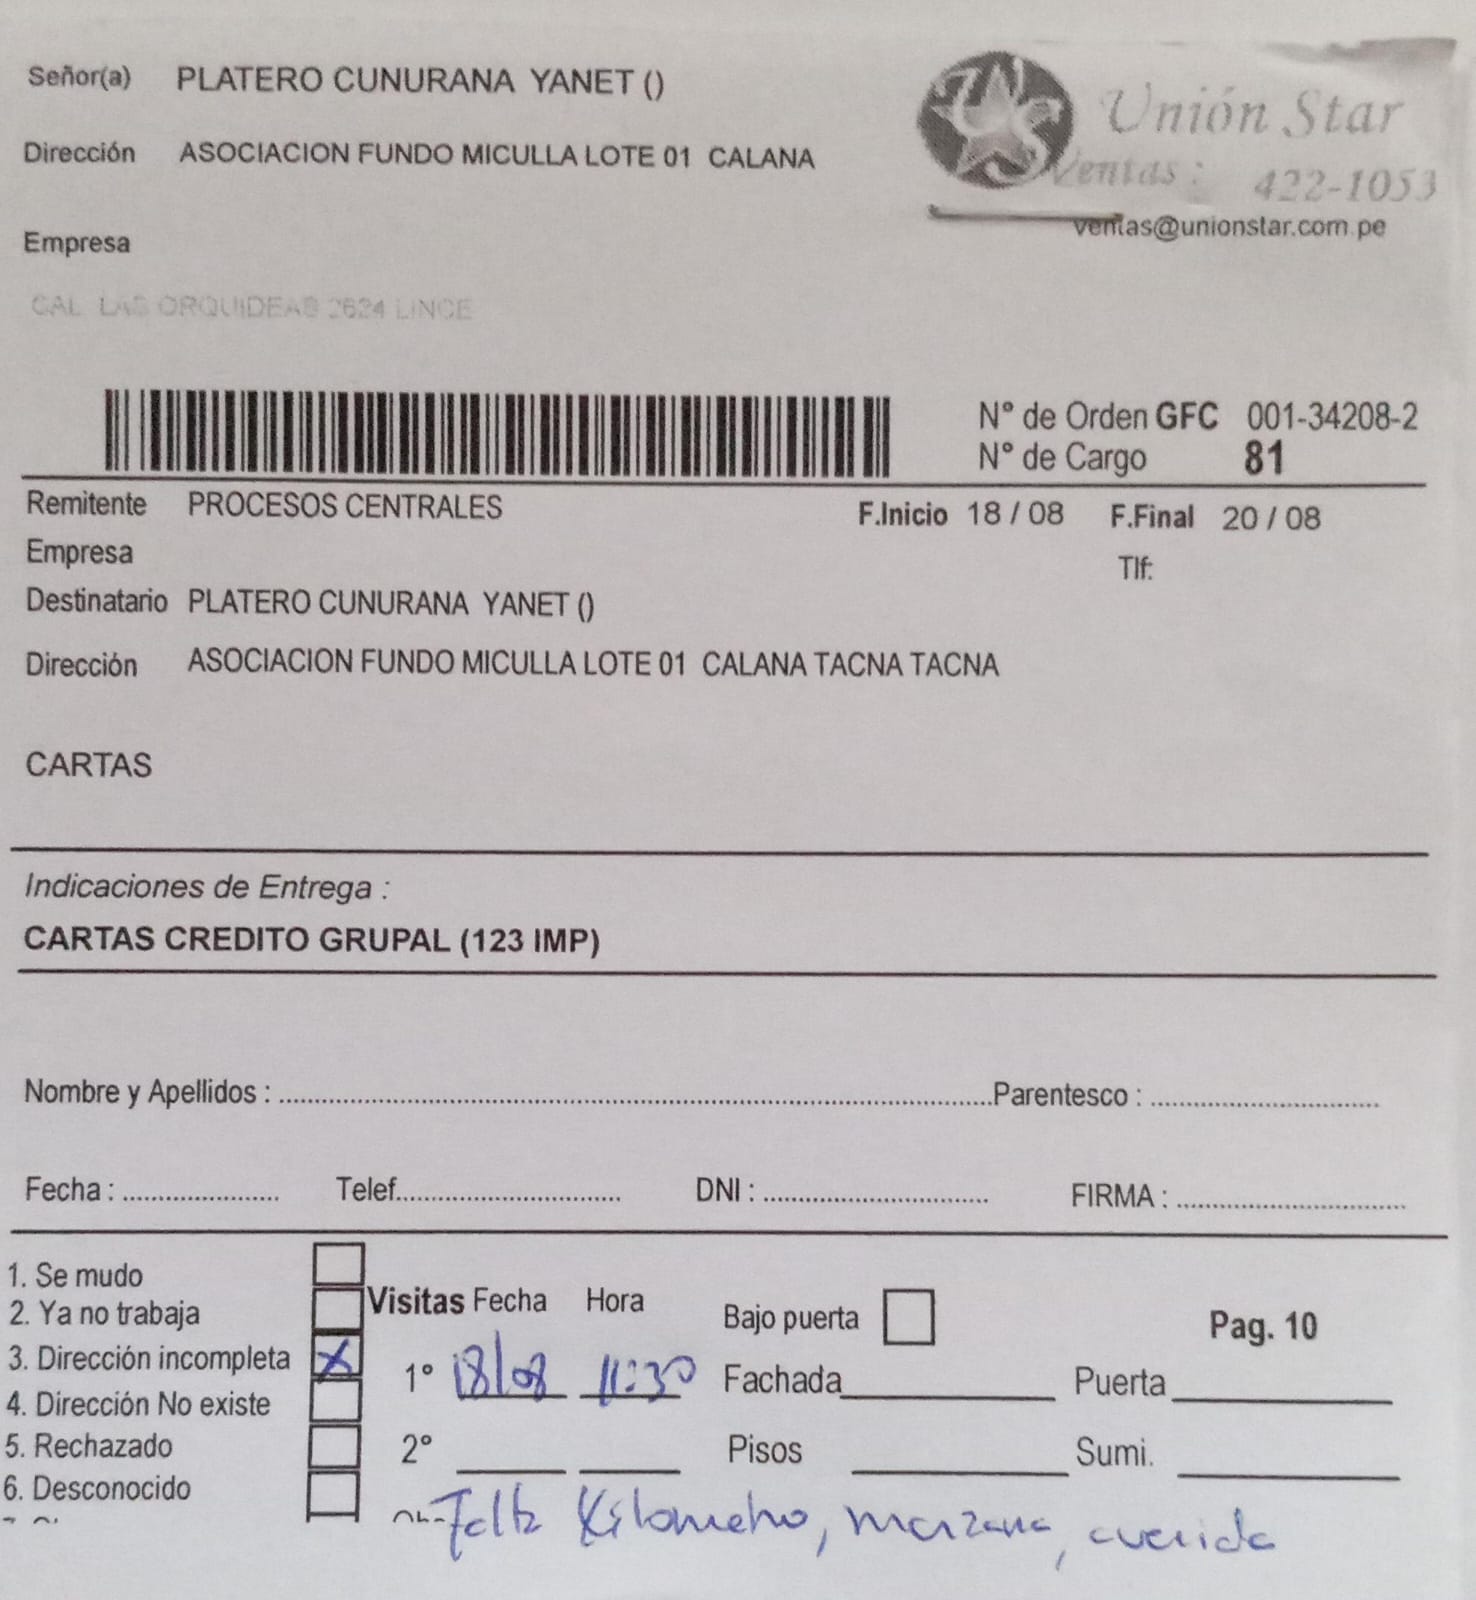 Señor(a) PLATERO CUNURANA YANET ()
Unión Star
Dirección ASOCIACION FUNDO MICULLA LOTE 01 CALANA
Ventas : 422-1053
ventas@unionstar.com.pe
Empresa
CAL LAS ORQUIDEAS 2624 LINCE
N° de Orden GFC 001-34208-2
N° de Cargo 81
Remitente PROCESOS CENTRALES F.Inicio 18 / 08 F.Final 20 / 08
Empresa Tlf:
Destinatario PLATERO CUNURANA YANET ()
Dirección ASOCIACION FUNDO MICULLA LOTE 01 CALANA TACNA TACNA
CARTAS
Indicaciones de Entrega :
CARTAS CREDITO GRUPAL (123 IMP)
Nombre y Apellidos : Parentesco :
Fecha : Telef. DNI : FIRMA :
1. Se mudo
2. Ya no trabaja
3. Dirección incompleta X
4. Dirección No existe
5. Rechazado
6. Desconocido
Visitas Fecha Hora
1° 18/08 11:30
2°
Bajo puerta Pag. 10
Fachada Puerta
Pisos Sumi.
Falta Kilometro, manzana, avenida